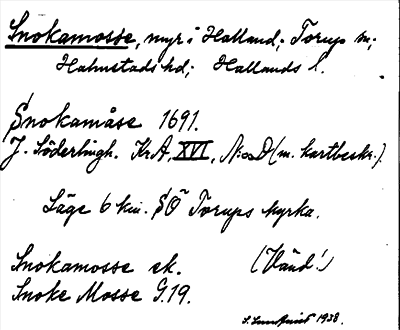 Snokamosse, myr i Halland; Torup sn;
Halmstads hd; Hallands l.
Snokamåse 1691.
J. Söderlingh. KrA, XVI, N:o D (m. kartbeskr.).
Läge 6 km. SÖ Torups kyrka.
Snokamosse ek. (Vänd!)
Snoke Mosse G.19.
S. Lundqvist 1938.